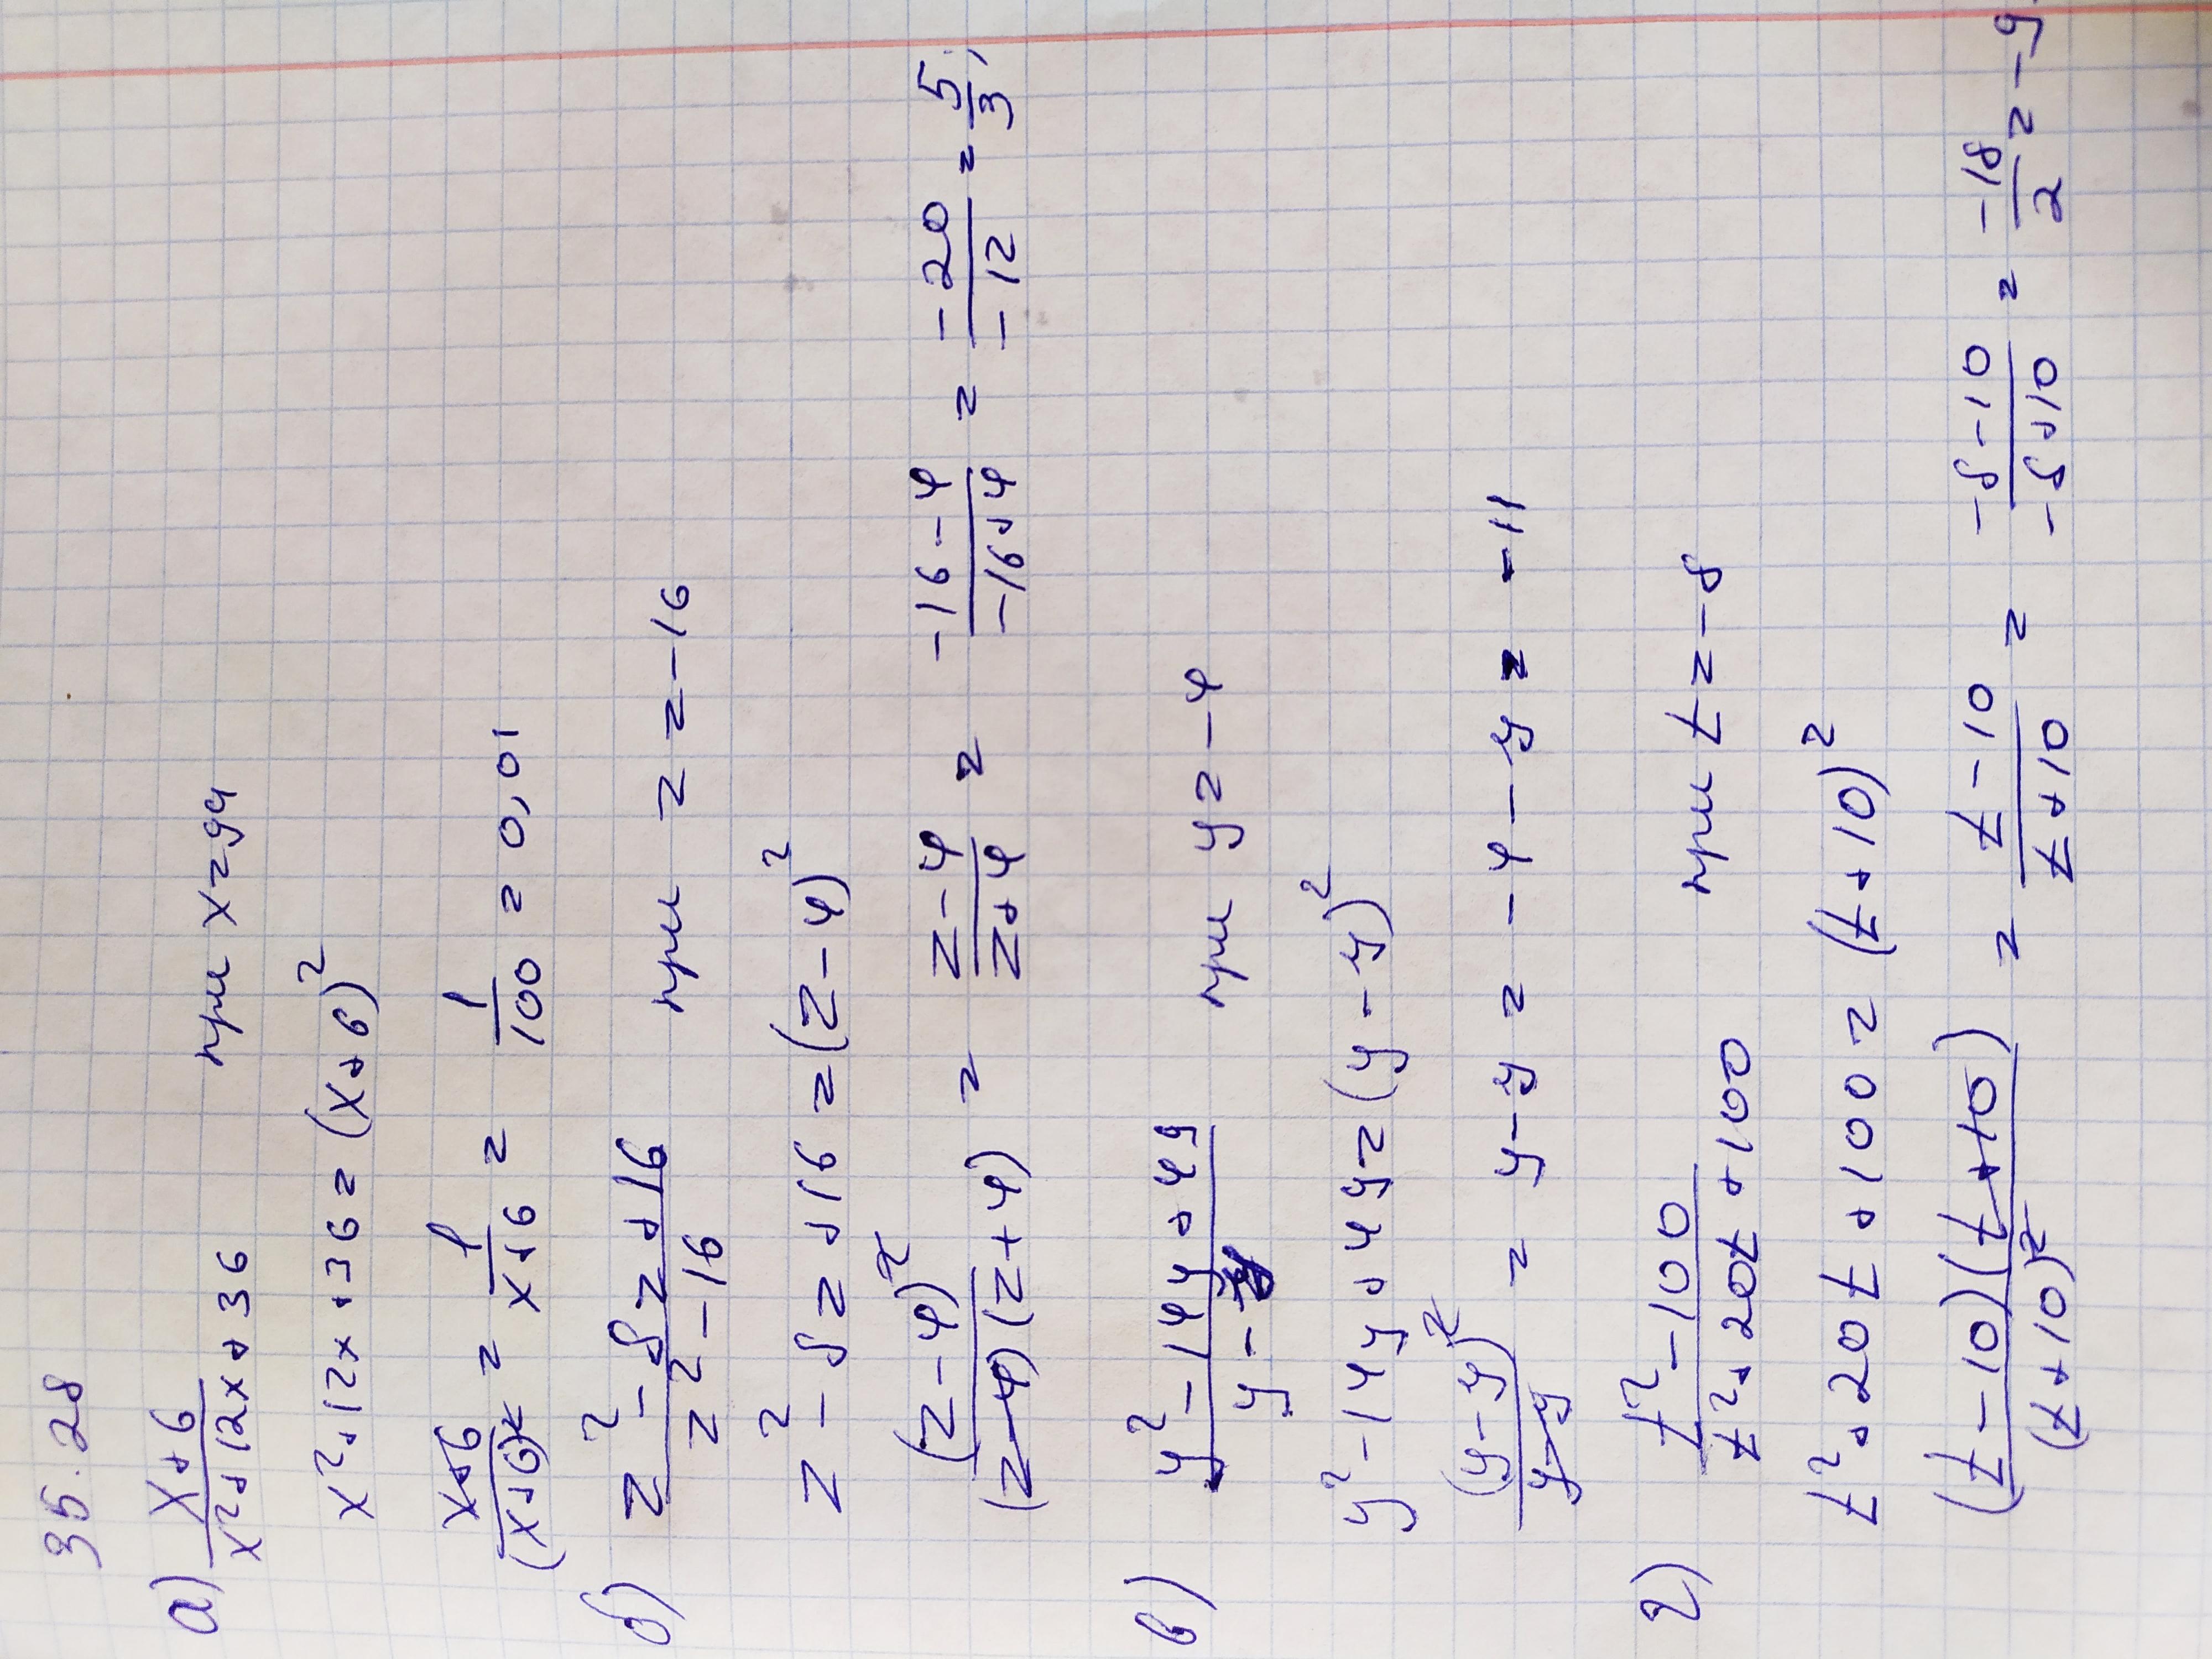 35.28
а) (x+6)/(x²+12x+36) при x=94
x²+12x+36=(x+6)²
(x+6)/(x+6)² = 1/(x+6) = 1/100 = 0,01
б) (z²-8z+16)/(z²-16) при z=-16
z²-8z+16=(z-4)²
(z-4)²/((z-4)(z+4)) = (z-4)/(z+4) = (-16-4)/(-16+4) = (-20)/(-12) = 5/3;
в) (y²-14y+49)/(y-7) при y=-4
y²-14y+49=(y-7)²
(y-7)²/(y-7) = y-7 = -4-7 = -11
г) (t²-100)/(t²+20t+100) при t=-8
t²+20t+100=(t+10)²
((t-10)(t+10))/(t+10)² = (t-10)/(t+10) = (-8-10)/(-8+10) = (-18)/2 = -9